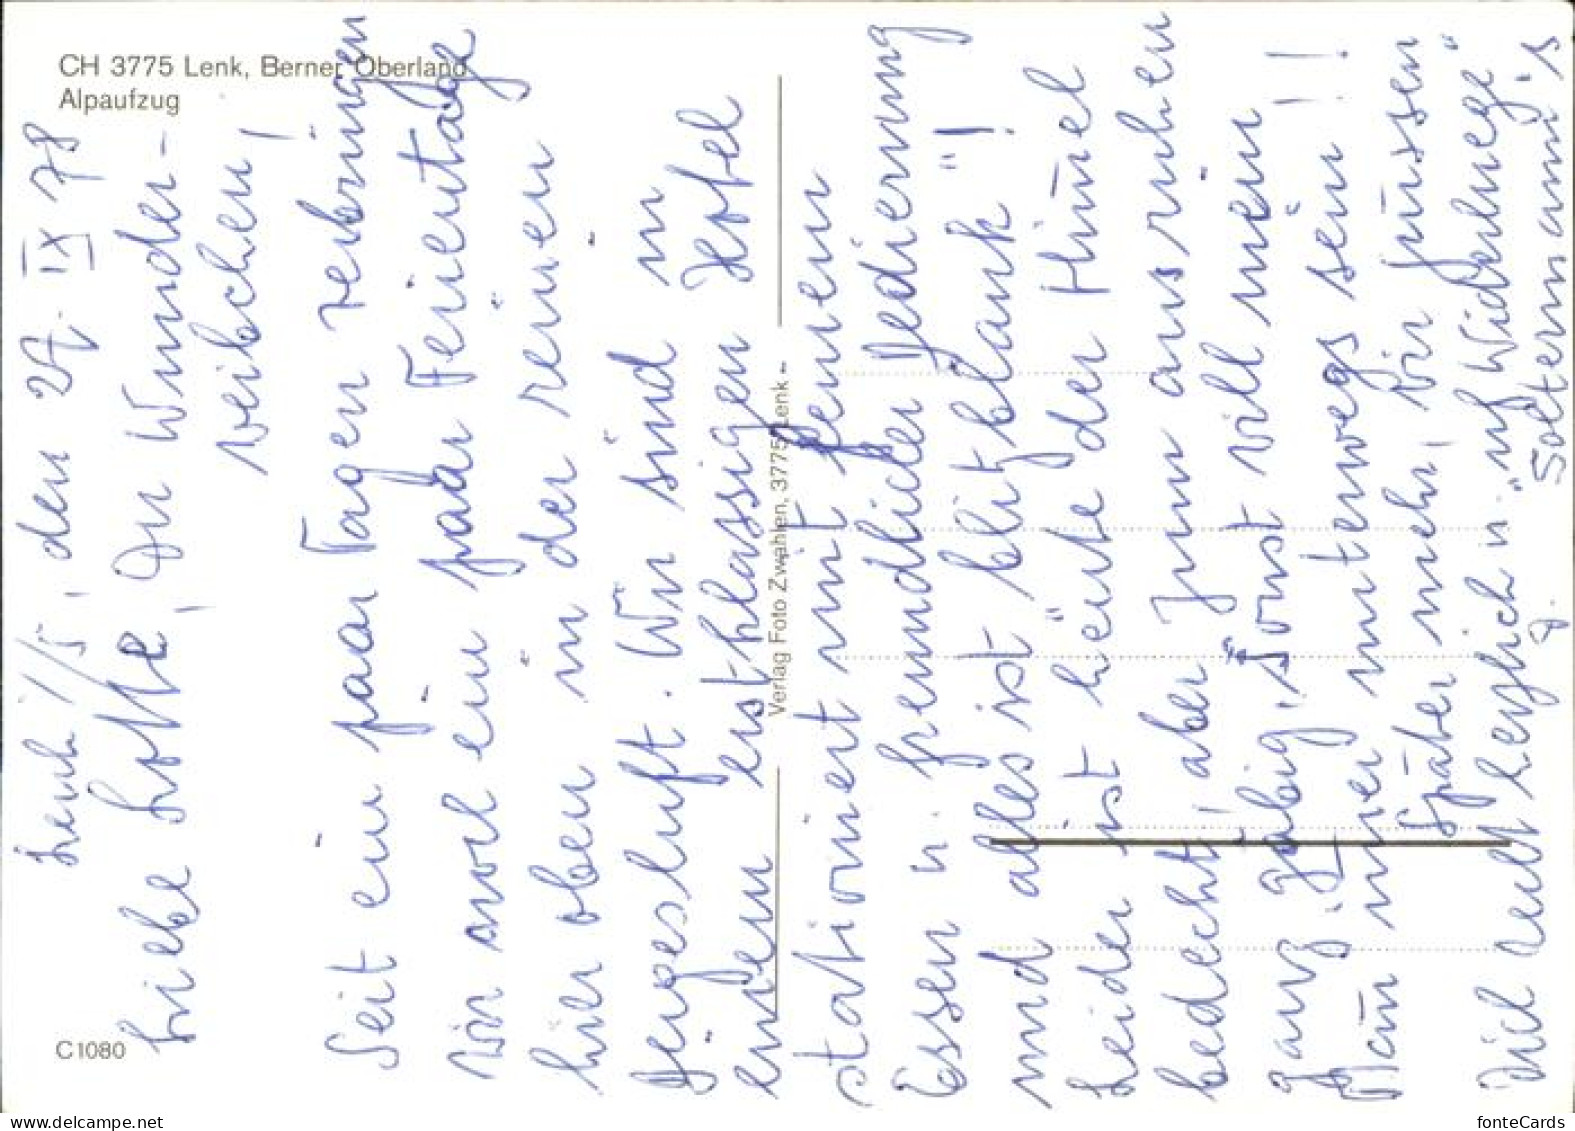 CH 3775 Lenk, Berner Oberland
Alpaufzug
C1080
Verlag Foto Zwahlen, 3775 Lenk
Lenk i/S, den 27. IX 78
Liebe Lotte, Du Wunder-
weibchen!
Seit ein paar Tagen verbringen
wir zwei ein paar Feiertage
hier oben in der reinen
Bergesluft. Wir sind in
einem erstklassigen Hotel
stationiert mit feinem
Essen u. freundlicher Bedienung
und alles ist "blitzblank"!
Leider ist heute der Himmel
bedeckt, aber zum ausruhen
ganz "gäbig", sonst will mein
Mann immer unterwegs sein!!
Später mehr, wir
Dich herzlich u. "uf Widerluege"